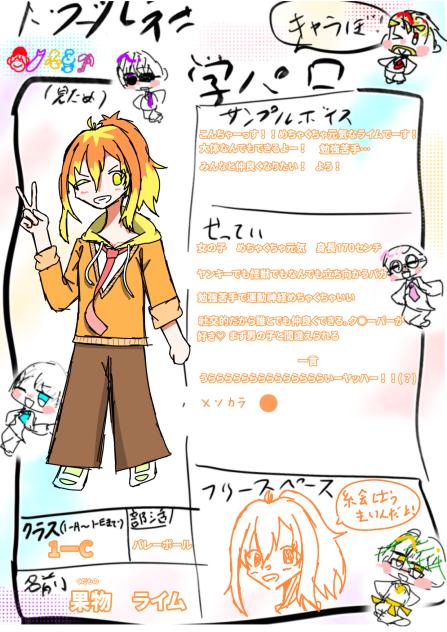 キャラぼ!
学パロ
(見ため)
サンプルボイス
こんちゃーっす!!めちゃくちゃ元気なライムでーす!
大体なんでもできるよー! 勉強苦手…
みんなと仲良くなりたい! よろ!
せってい
女の子 めちゃくちゃ元気 身長170センチ
ヤンキーでも怪獣でもなんでも立ち向かうバカ
勉強苦手で運動神経めちゃくちゃいい
社交的だから誰とでも仲良くできる。ク●ーバーが
好き♡ まず男の子と間違えられる
一言
うららららららららららららいーヤッハー!!(?)
メンカラ
フリースペース
クラス(1-A〜1-Eまで)
1ーC
部活
バレーボール
名前
くだもの
果物 ライム